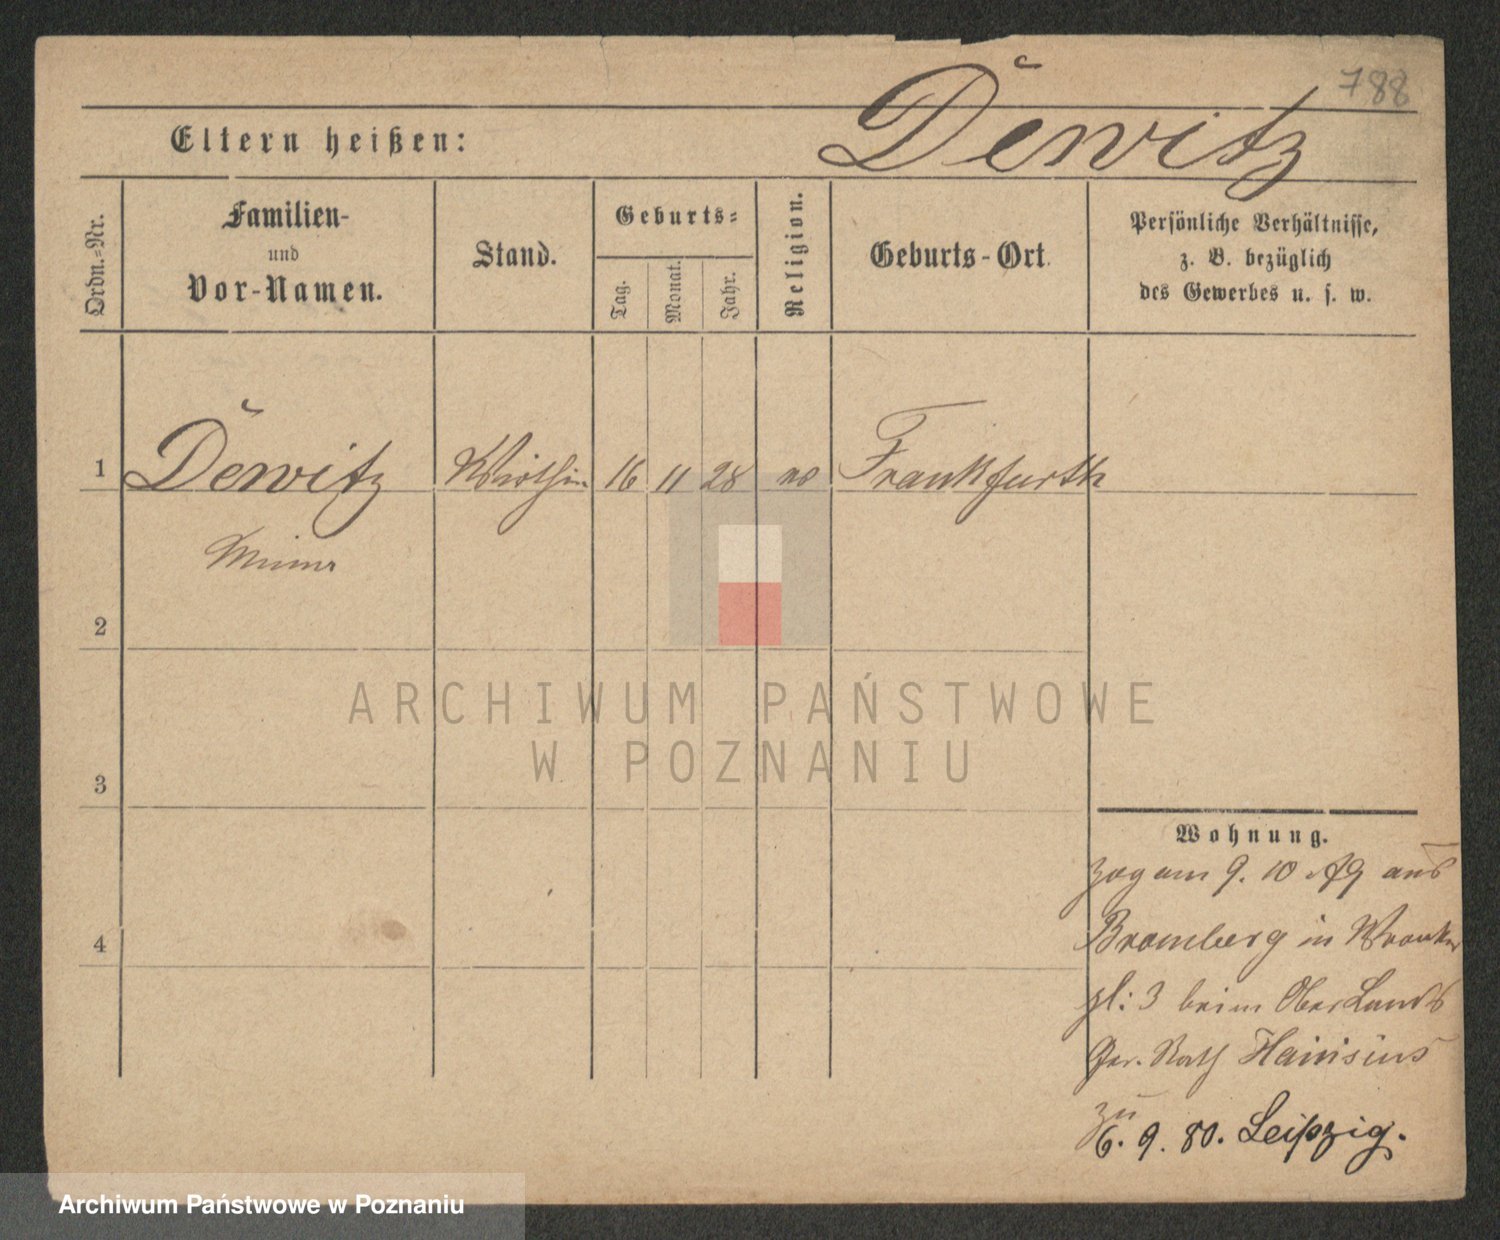 788
Eltern heißen: Dewitz
Ordn.-Nr.
Familien-
und
Vor-Namen.
Stand.
Geburts-
Tag.
Monat.
Jahr.
Religion.
Geburts-Ort.
Persönliche Verhältnisse,
z. B. bezüglich
des Gewerbes u. s. w.
1 Dewitz Wirthin 16 11 28 Frankfurth
2
3
4
ARCHIWUM PAŃSTWOWE
W POZNANIU
Wohnung.
zog am 9. 10 79 aus
Bromberg in Wronker
pl: 3 beim Ober Lands
Ger. Rath
zu
6. 9. 80. Leipzig.
Archiwum Państwowe w Poznaniu